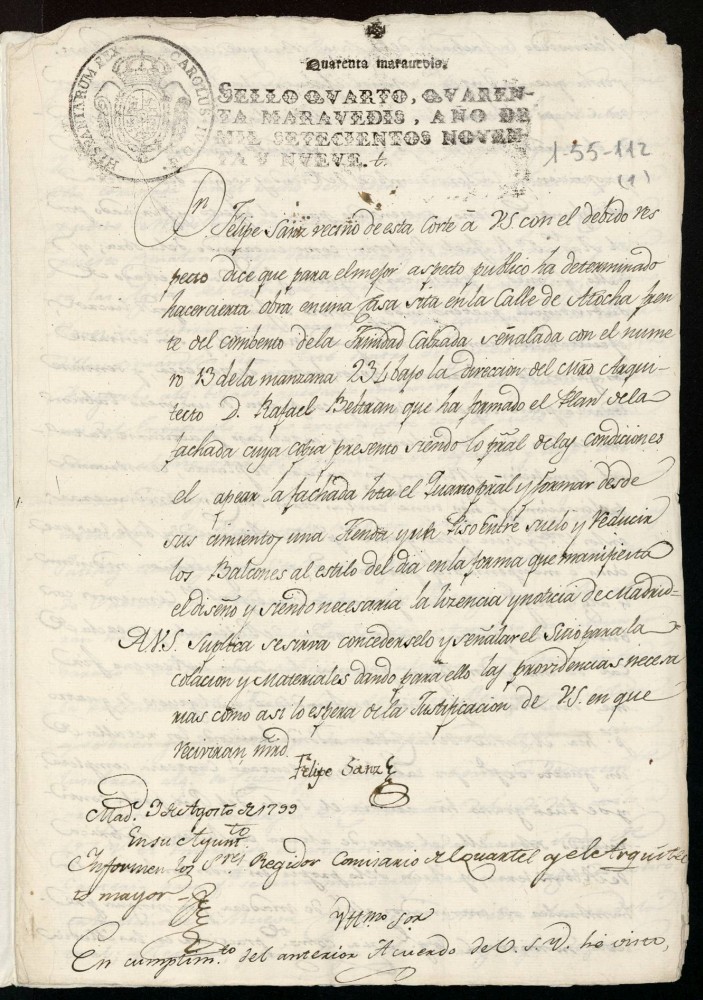 Quarenta maravedis.
SELLO QVARTO, QVAREN-
TA MARAVEDIS, AÑO DE
MIL SETECIENTOS NOVEN-
TA Y NVEVE.
HISPANIARUM REX CAROLUS IV D.G.
1-55-112
(1)
Dn Felipe Sanz vecino de esta Corte â V.S. con el debido res
pecto dice que para el mejor aspecto publico ha determinado
hacer cierta obra en una Casa sita en la Calle de Atocha fren
te del combento de la Trinidad Calzada señalada con el nume
ro 13 de la manzana 234 bajo la direccion del Mro Arqui-
tecto D. Rafael Beltran que ha formado el Plan de la
fachada cuya copia presento siendo lo pral de las condiciones
el apear la fachada hta el Quarto pral y formar desde
sus cimientos una Tienda y un Piso Entre suelo y reducir
los Balcones al estilo del dia en la forma que manifiesta
el diseño y siendo necesaria la lizencia y noticia de Madrid=
A V.S. Suplica se sirva concederselo y señalar el Sitio para la
colacion y Materiales dando para ello las providencias necesa
rias como asi lo espera de la Justificacion de V.S. en que
reciviran mrd.
Felipe Sanz
Mad. 3 de Agosto de 1799
En su Ayunto
Informen los Sres Regidor Comisario del Quartel y el Arquitec
to mayor
Yttmo Sor
En cumplimto del anterior Acuerdo de V.S.Y. he visto,